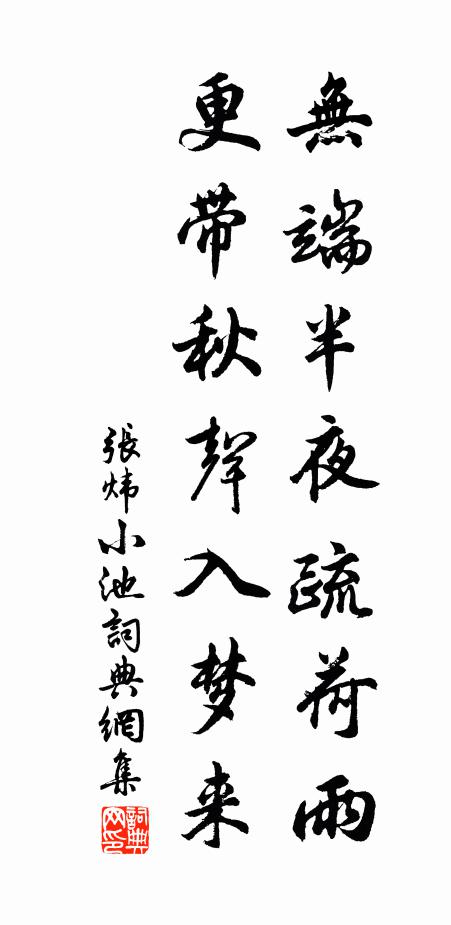 無端半夜疏荷雨
更带秋聲入梦来
張炜小池詞典網集
詞典网印